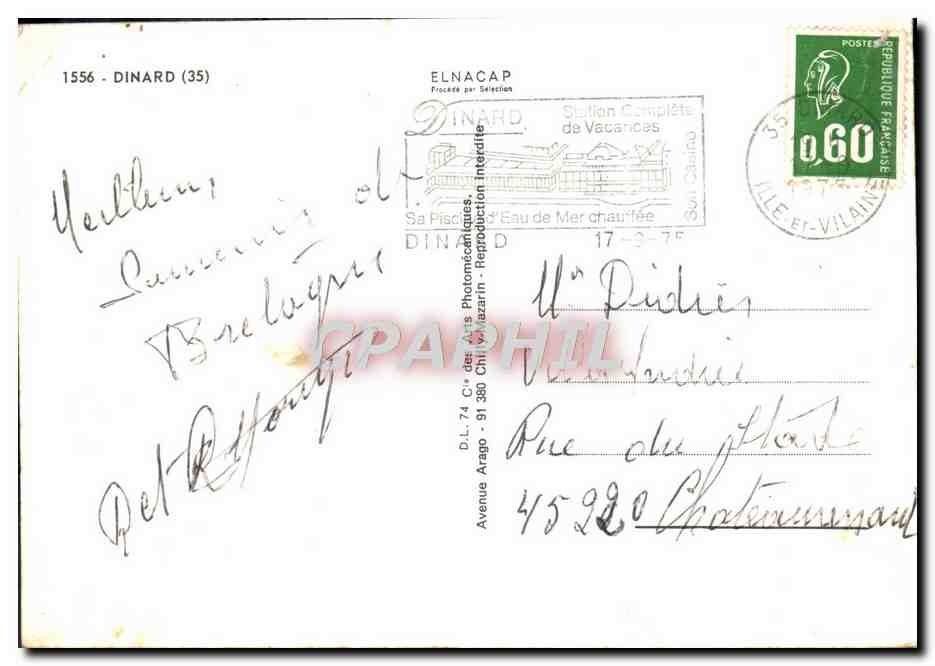 1556 - DINARD (35)
ELNACAP
Procédé par Sélection
POSTES
RÉPUBLIQUE FRANÇAISE
0,60
DINARD
Station Complète
de Vacances
Son Casino
Sa Piscine d'Eau de Mer chauffée
DINARD 17-9-75
35 DINARD
ILLE-et-VILAINE
Meilleurs
Souvenirs de
Bretagne
D.L. 74 Cie des Arts Photomécaniques.
Avenue Arago - 91 380 Chilly-Mazarin - Reproduction interdite
CPAPHIL
Mr Didier
Rue du Stade
45220 Chateaurenard